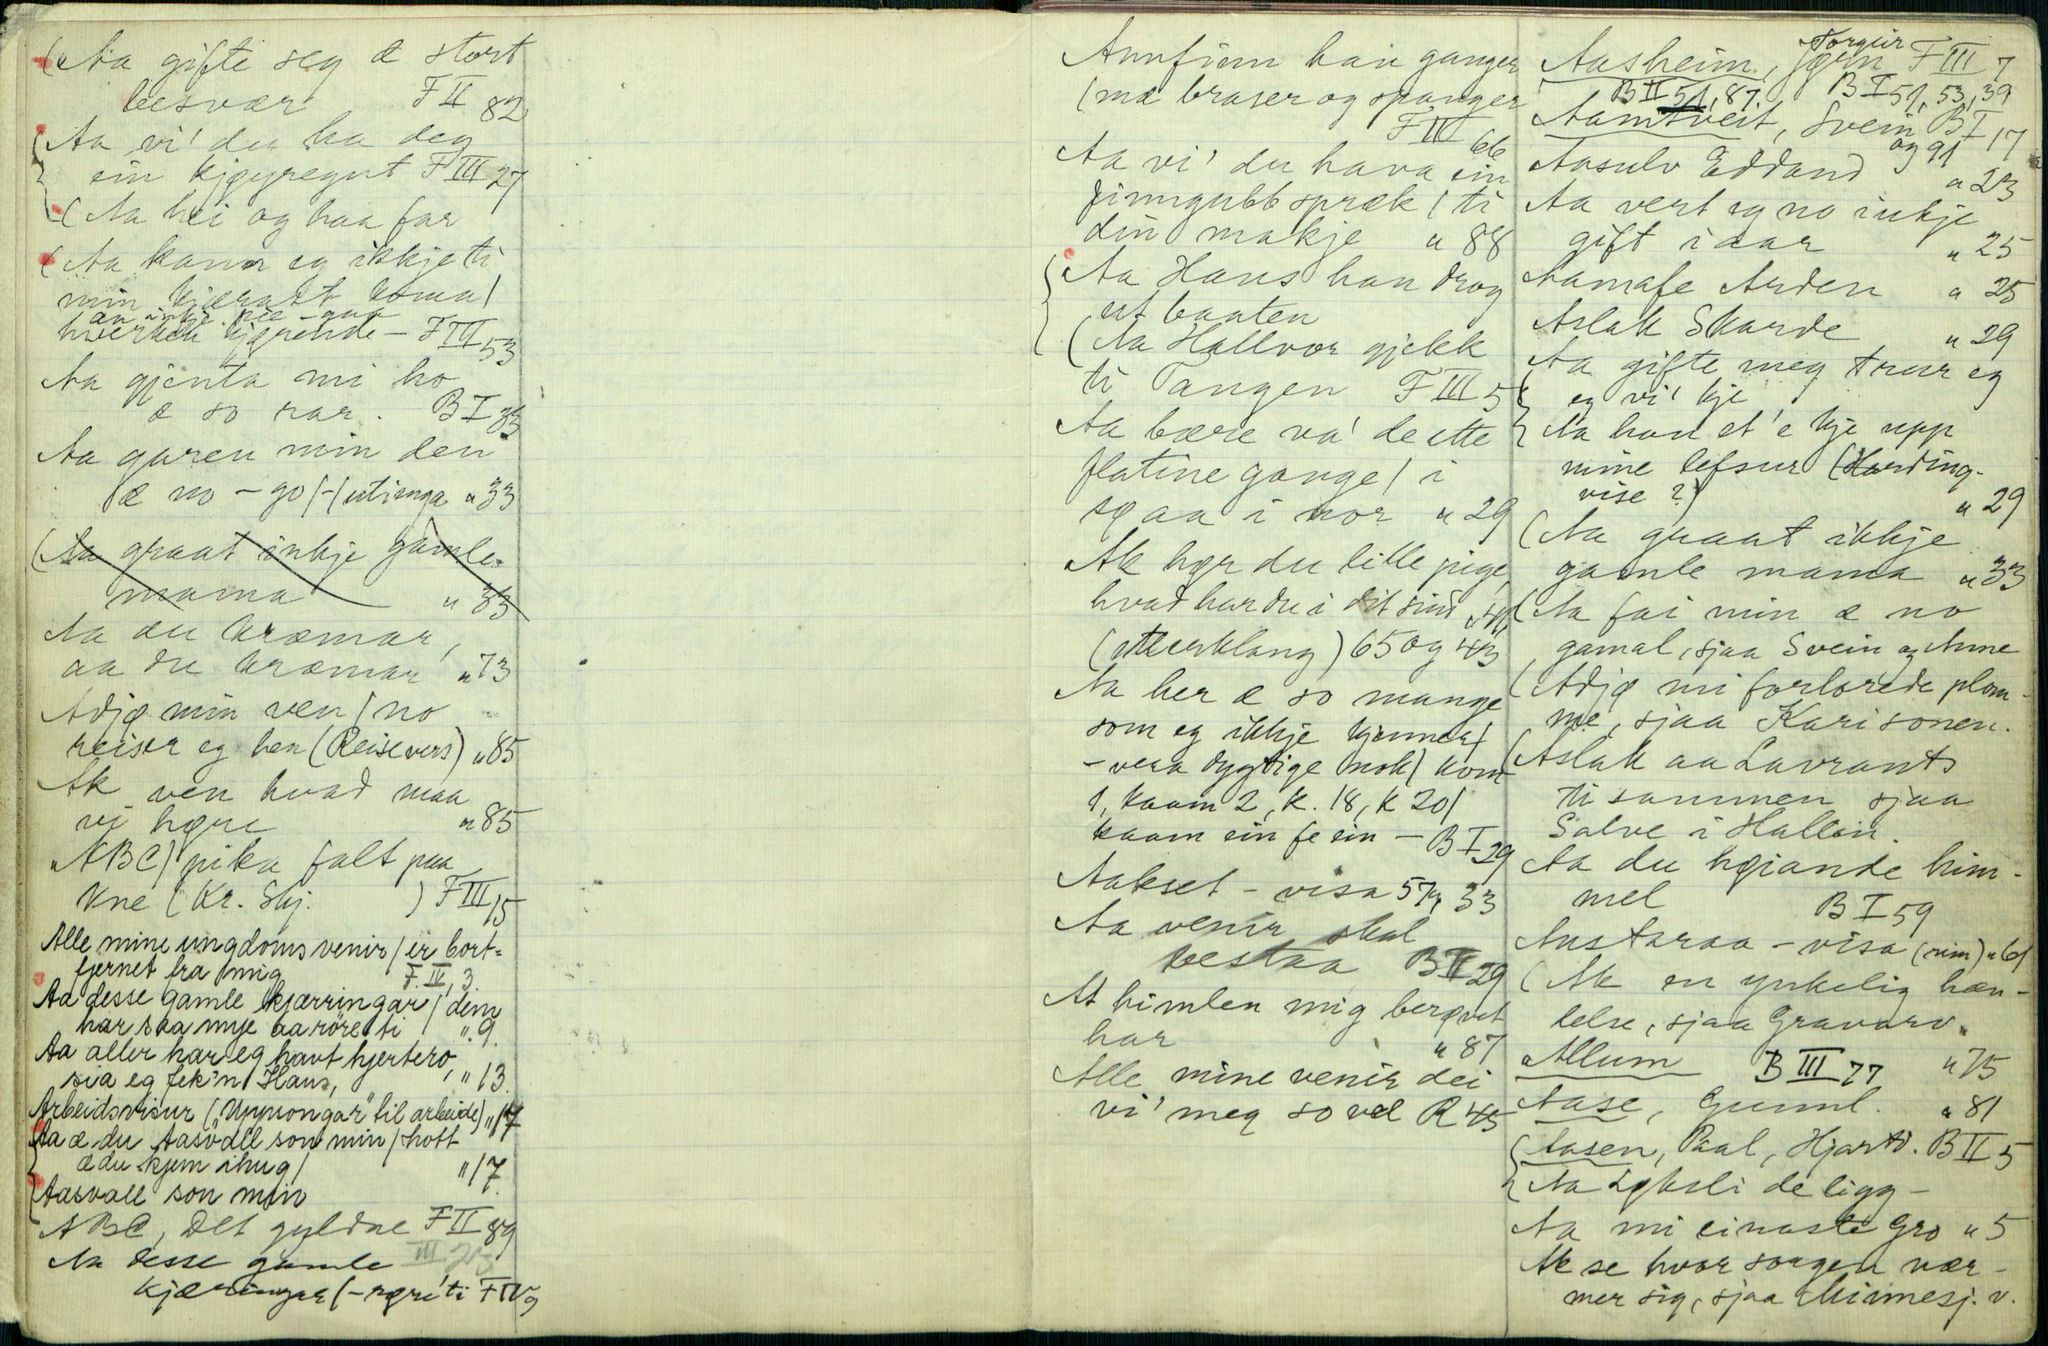 (Aa gifte seg æ stort
besvær F II 82
(Aa vi' du ha deg
ein kjøyregut F III 27
(Aa hei og haa far
(Aa kann eg ikkje ti
min kjærast koma/
hverken kjørende – F III 53
Aa gjenta mi ho
æ so rar. B I 33
Aa garen min den
æ no – go/-/utimga " 33
(Aa graat inkje gamle
mama " 33
Aa du kræmar,
aa du kræmar " 73
Adjø min ven / no
reiser eg hen (Reisevers) " 85
Ak ven hvad maa
vi høre " 85
"ABC) pika falt paa
kne (Kr. Skj. ) F III 15
Alle mine ungdoms venir / er bort=
fjernet fra mig F. IV, 3.
Aa desse gamle kjærringar / dem
har saa mye aa röre ti ". 9.
Aa aller har eg havt hjertero,
sia eg fek'n Hans, " 13.
Arbeidsvisur ("Uppsongar" til arbeide) " 17
Aa æ du Aasvall son min / hott
æ du kjem ihug / " 17.
(Aasvall son min
ABC, Det gyldne F II 89
Aa desse gamle III 25
kjæringar (– røre ti F IV 9
Annfinn han ganger
(mæ braser og spanger
F III 66
Aa vi' du hava ein
finngubb spræk / ti
din makje " 88
Aa Hans han drog
ut baaten
(Aa Hallvor gjekk
ti Tangen F III 5
Aa bære va' de ette
flatine gange / i
sgaa i nor " 29
Ak hør du lille pige
hvad har du i dit sind
(etterklang) 65 og 43
Aa her æ so mange
som eg ikkje kjenner /
– vera dygtige nok / kom
1, kaam 2, k. 18, k 20 /
kaam ein fe ein – B I 29
Aakset – visa 57, 33
Aa venir skal
bestaa B II 29
At himlen mig berøvet
har " 87
Alle mine venir dei
vi' meg so vel R 45
Aasheim, Jørn Torgeir F III 7
B II 51, 87. B I 51, 53, 39
Aamtveit, Svein B I 17
og 91
Aasulv Eddand " 23
Aa vert eg no inkje
gift i aar " 25
Aamafe Arden " 25
Aslak Skarde " 29
Aa gifte meg trur eg
eg vi' kje
Aa han et'e kje upp
mine lefsur (Harding-
vise ?) " 29
(Aa graat ikkje
gamle mama " 33
(Aa fai min æ no
gamal, sjaa Svein og Anne
(Adjø mi forlorede plom-
me, sjaa Kari sonen.
(Aslak aa Lavrants
ti sammen sjaa
Salve i Hallin.
Aa du høiande him-
mel B I 59
Austaraa – visa (rim) " 61
(Ak en ynkelig hæn-
delse, sjaa Gravarv.
Allum B III 77 " 75
Aase, Gunnl. " 81
(Aasen, Paal, Hjartd. B II 5
Aa Løksli de ligg –
Aa mi einaste Gro " 5
Ak se hvor sorgen nær-
mer sig, sjaa Minnesj. v.